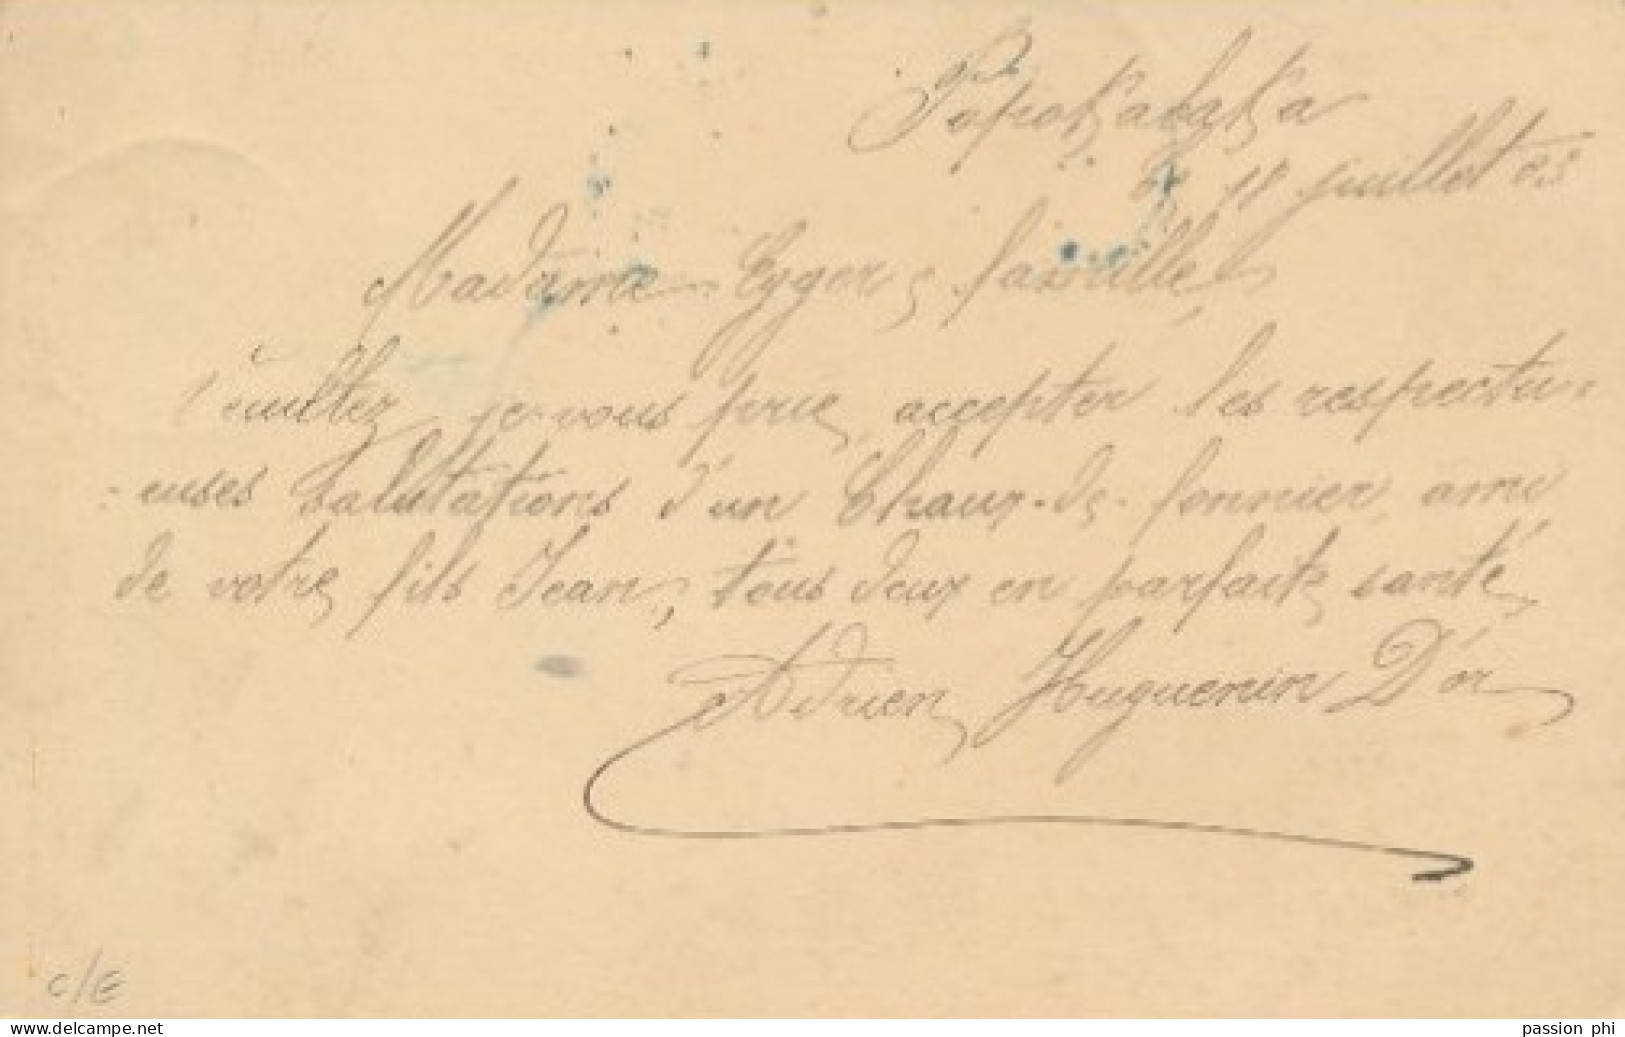 Popokabaka
11 juillet 03
Madame Egger
Veuillez, je vous prie, accepter les respectu-
-euses salutations d'un Chaux-de-fonnier, ami
de votre fils Jean, tous deux en parfaite santé,
Adrien Huguenin D'or
c/E
www.delcampe.net
passion phi